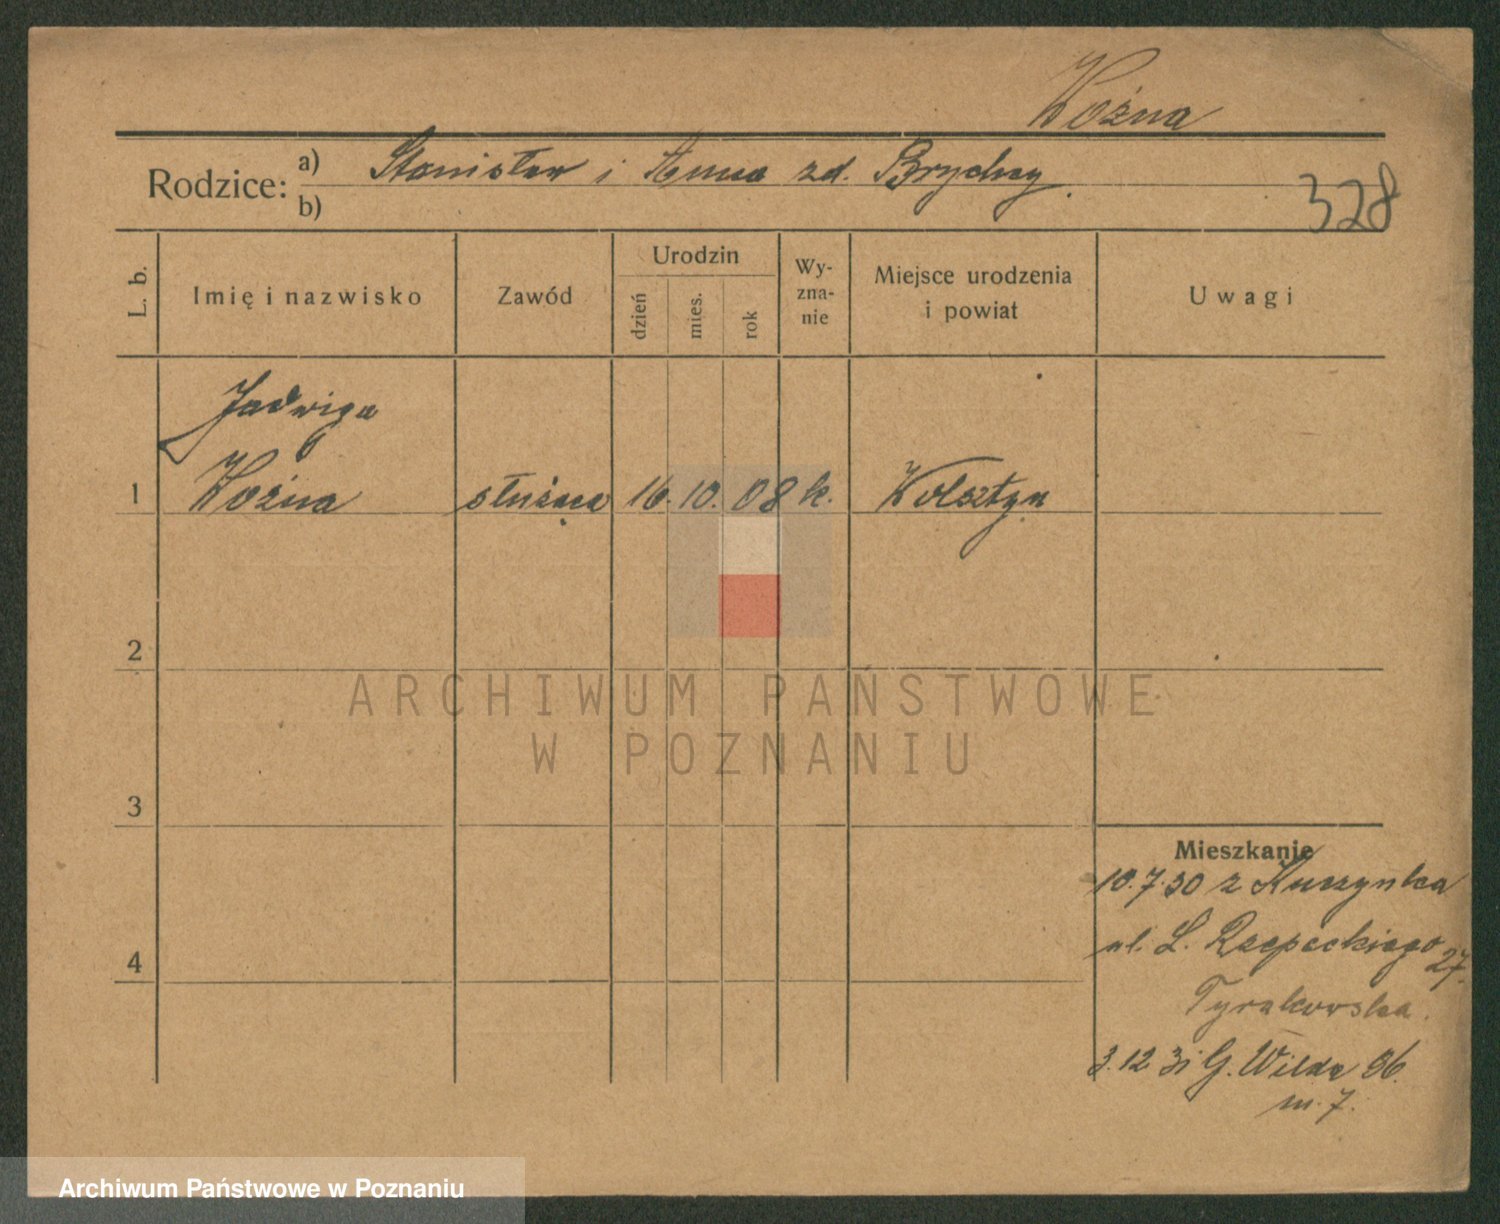 Woźna
Rodzice: a) Stanisław i Anna zd. Brychcy.
b)
328
L. b.
Imię i nazwisko
Zawód
Urodzin
dzień
mies.
rok
Wy-
zna-
nie
Miejsce urodzenia
i powiat
Uwagi
Jadwiga
1 Woźna służąca 16. 10. 08 k. Wolsztyn
2
ARCHIWUM PAŃSTWOWE
W POZNANIU
3
Mieszkanie
10.7.30 z Kuczynka
ul. L. Rzepeckiego 27.
4
Tyrakowska.
3.12.31 G. Wilda 96.
m. 7.
Archiwum Państwowe w Poznaniu